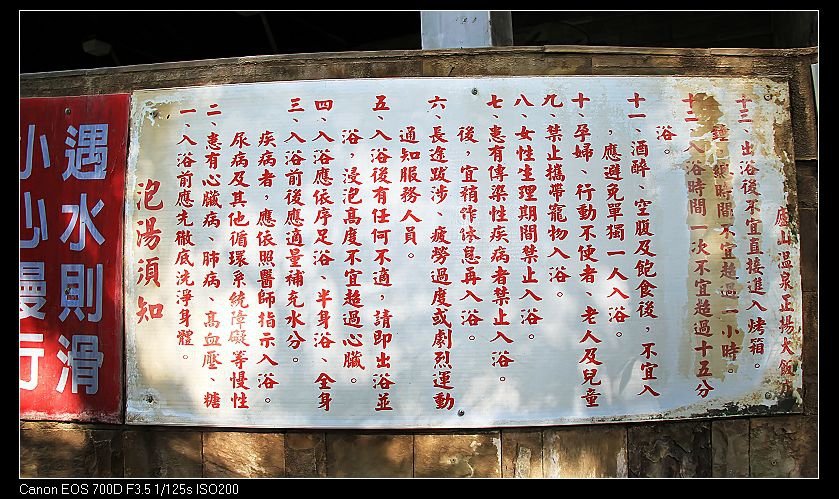 遇水則滑
小心慢行
泡湯須知
一、入浴前應先徹底洗淨身體。
二、患有心臟病、肺病、高血壓、糖
尿病及其他循環系統障礙等慢性
疾病者，應依照醫師指示入浴。
三、入浴前後應適量補充水分。
四、入浴應依序足浴、半身浴、全身
浴，浸泡高度不宜超過心臟。
五、入浴後有任何不適，請即出浴並
通知服務人員。
六、長途跋涉、疲勞過度或劇烈運動
後，宜稍作休息再入浴。
七、患有傳染性疾病者禁止入浴。
八、女性生理期間禁止入浴。
九、禁止攜帶寵物入浴。
十、孕婦、行動不便者、老人及兒童
，應避免單獨一人入浴。
十一、酒醉、空腹及飽食後，不宜入
浴。
十二、入浴時間一次不宜超過十五分
鐘，總時間不宜超過一小時。
十三、出浴後不宜直接進入烤箱。
廬山溫泉正揚大飯
Canon EOS 700D F3.5 1/125s ISO200